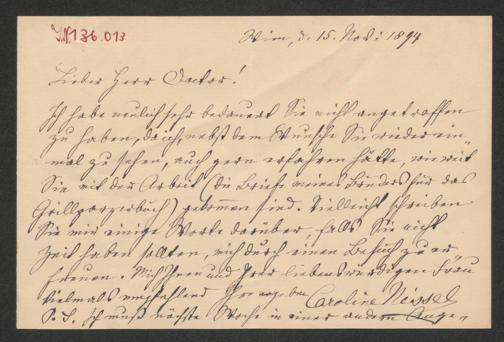 I.N. 136.013
Wien, d. 15. Nov: 1894
Lieber Herr Doctor!
Ich habe neulich sehr bedauert Sie nicht angetroffen
zu haben, da ich, nebst dem Wunsche Sie wieder ein
mal zu sehen, auch gern erfahren hätte, wie weit
Sie mit der Arbeit (die Briefe meines Bruders für das
Grillparzerbuch) gekommen sind. Vielleicht schreiben
Sie mir einige Worte darüber, falls Sie nicht
Zeit haben sollten, mich durch einen Besuch zu er
freuen. Mich Ihnen und Ihrer liebenswürdigen Frau
vielmals empfehlend Ihre ergebene Caroline Nissel
P. S. Ich muß nächste Woche in einer andern Ange-